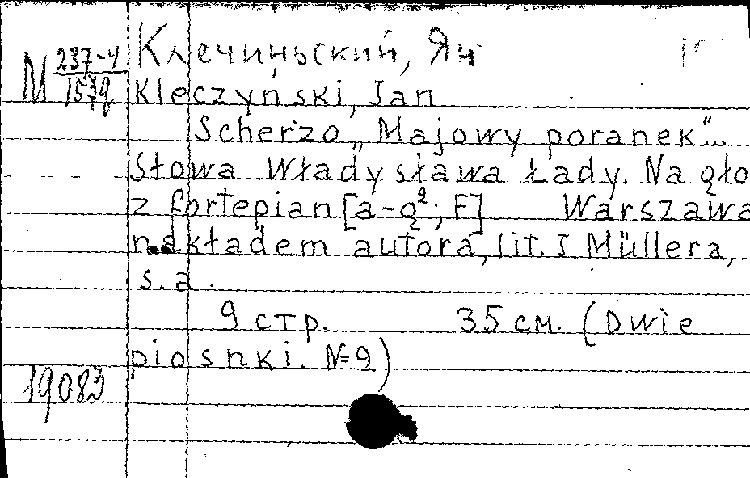 Клечиньский, Ян
М 237-4/1579 Kleczyński, Jan
Scherzo „Majowy poranek"...
Słowa Władysława Łady. Na gło
z fortepian [a-g²; F] Warszawa
nakładem autora, lit. J Müllera,
s. a.
9 стр. 35 см. (Dwie
piosnki. №9)
19083